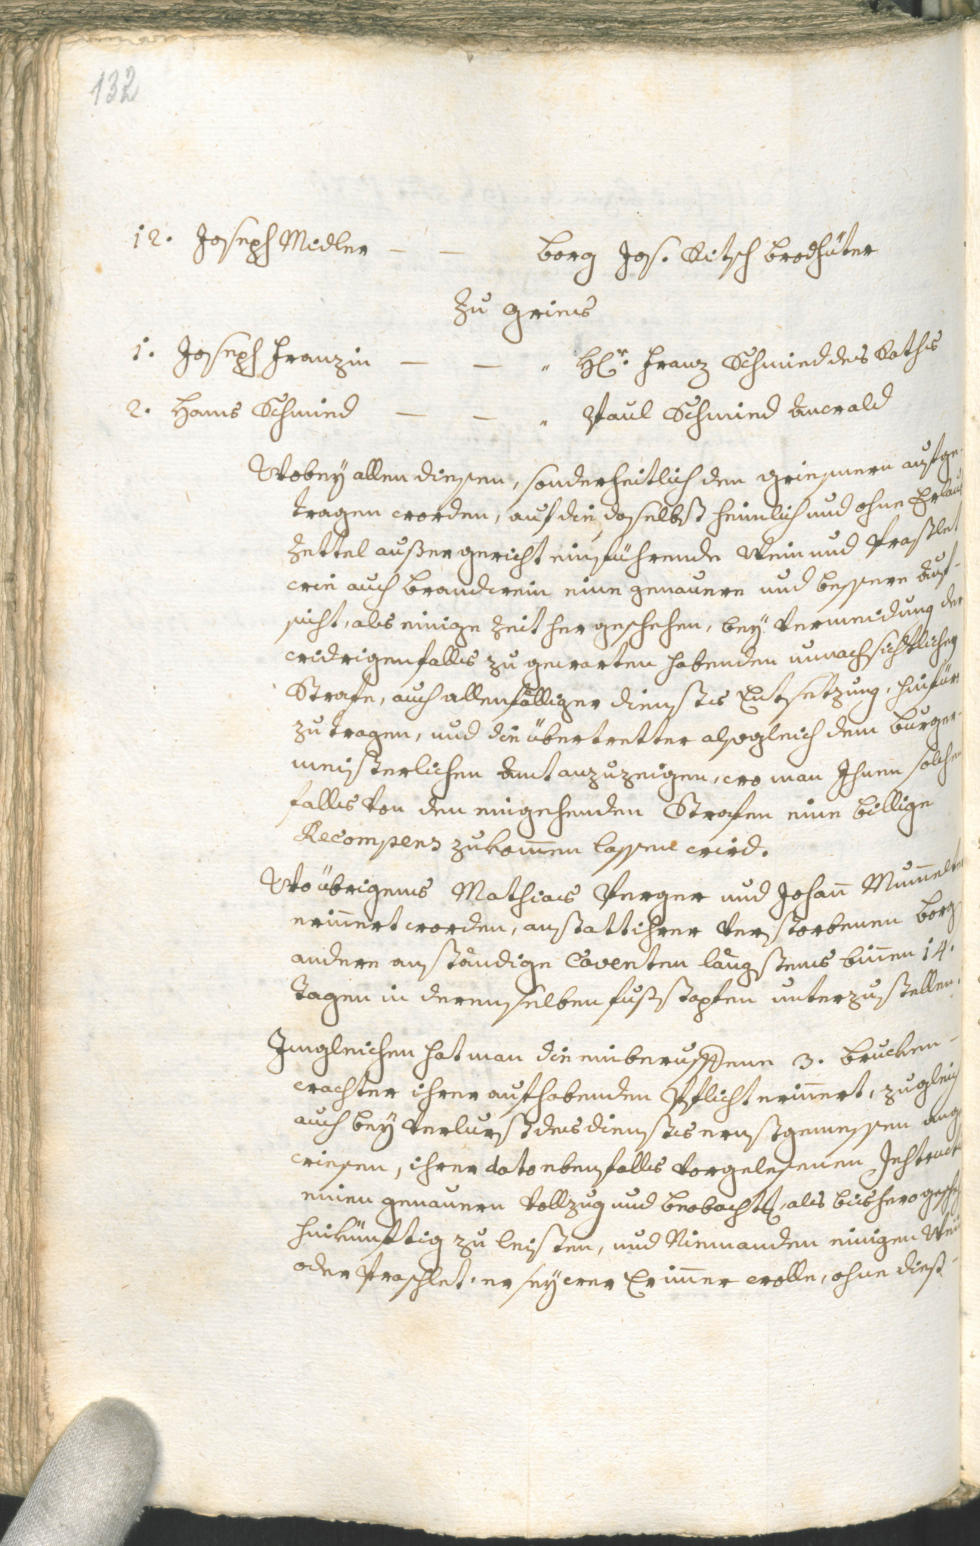 132
12. Joseph Midler — — borg Jos. Kitsch brodhüter
Zu Gries
1. Joseph Franzin — — " H[err] Franz Schmied des Raths
2. Hans Schmied — — " Paul Schmied
Wobey allen diesen, sonderheitlich den Griesnern aufge-
tragen worden, auf die daselbst heimlich und ohne Erlaub
Zettel außer gericht einführende Wein und Praßlet
wie auch brandwein eine genauere und bessere Auf-
sicht, als einige Zeit her geschehen, bey Vermeidung der
widrigenfalls zu gewarten habenden unnachsichtlichen
Strafe, auch allenfälliger Dienstes Entsetzung, hinfür
zu tragen, und die übertretter alsogleich dem burger-
meisterlichen Amt anzuzeigen, wo man Ihnen solchen
falls von den eingehenden Strafen eine billige
Recompens zukom̄en lassen wird.
Wo übrigens Mathias Perger und Johan̄ Mum̄elter
erin̄ert worden, anstatt ihrer verstorbenen borg
andere anständige Caventen längstens bin̄en 14.
Tagen in derenselben fußstapfen unterzustellen.
Ingleichen hat man die einberuffene 3. brucken-
wachter ihrer aufhabenden Pflicht erin̄ert, zugleich
auch bey Verlurst des dienstes ernstgemessen ange
wiesen, ihrer dato ebenfalls vorgelesenen Instruct
einen genauern Vollzug und beobacht[ung], als bishero gescheh
hinkünftig zu leisten, und Niemanden einigen Wein
oder Praschlet, er sey wer Er im̄er wolle, ohne dieß-